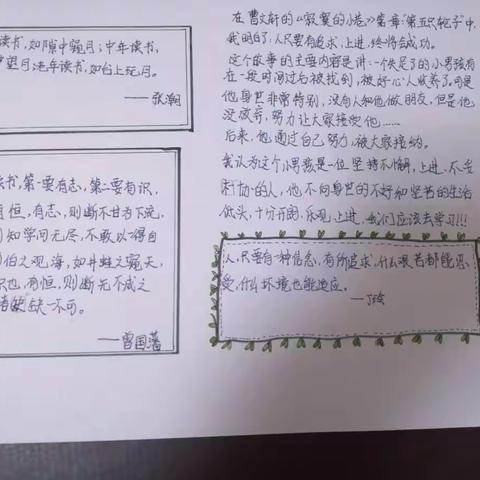 读书,如隙中窥月;中年读书,
望月;老年读书,如台上玩月。
——张潮
读书,第一要有志,第二要有识,
恒,有志,则断不甘为下流,
知学问无尽,不敢以一得自
伯之观海,如井蛙之窥天,
识也,有恒,则断无不成之
者缺一不可。
——曾国藩
在曹文轩的《寂寞的小巷》第章“第五只轮子”中,
我明白了,人只要有追求、上进,终将会成功。
这个故事的主要内容是讲:一个失足了的小男孩有
在一段时间过后被找到,被好心人收养了。可是
他身世非常特别,没有人和他做朋友,但是他
没放弃,努力让大家接受他……
后来,他通过自己努力,被大家接纳。
我认为这个小男孩是一位坚持不懈、上进、不
的人,他不向身世的不好和坚苦的生活
低头,十分开朗、乐观、上进,我们应该去学习!!!
人,只要有一种信念,有所追求,什么艰苦都能忍
受,什么环境也能适应。
——丁玲